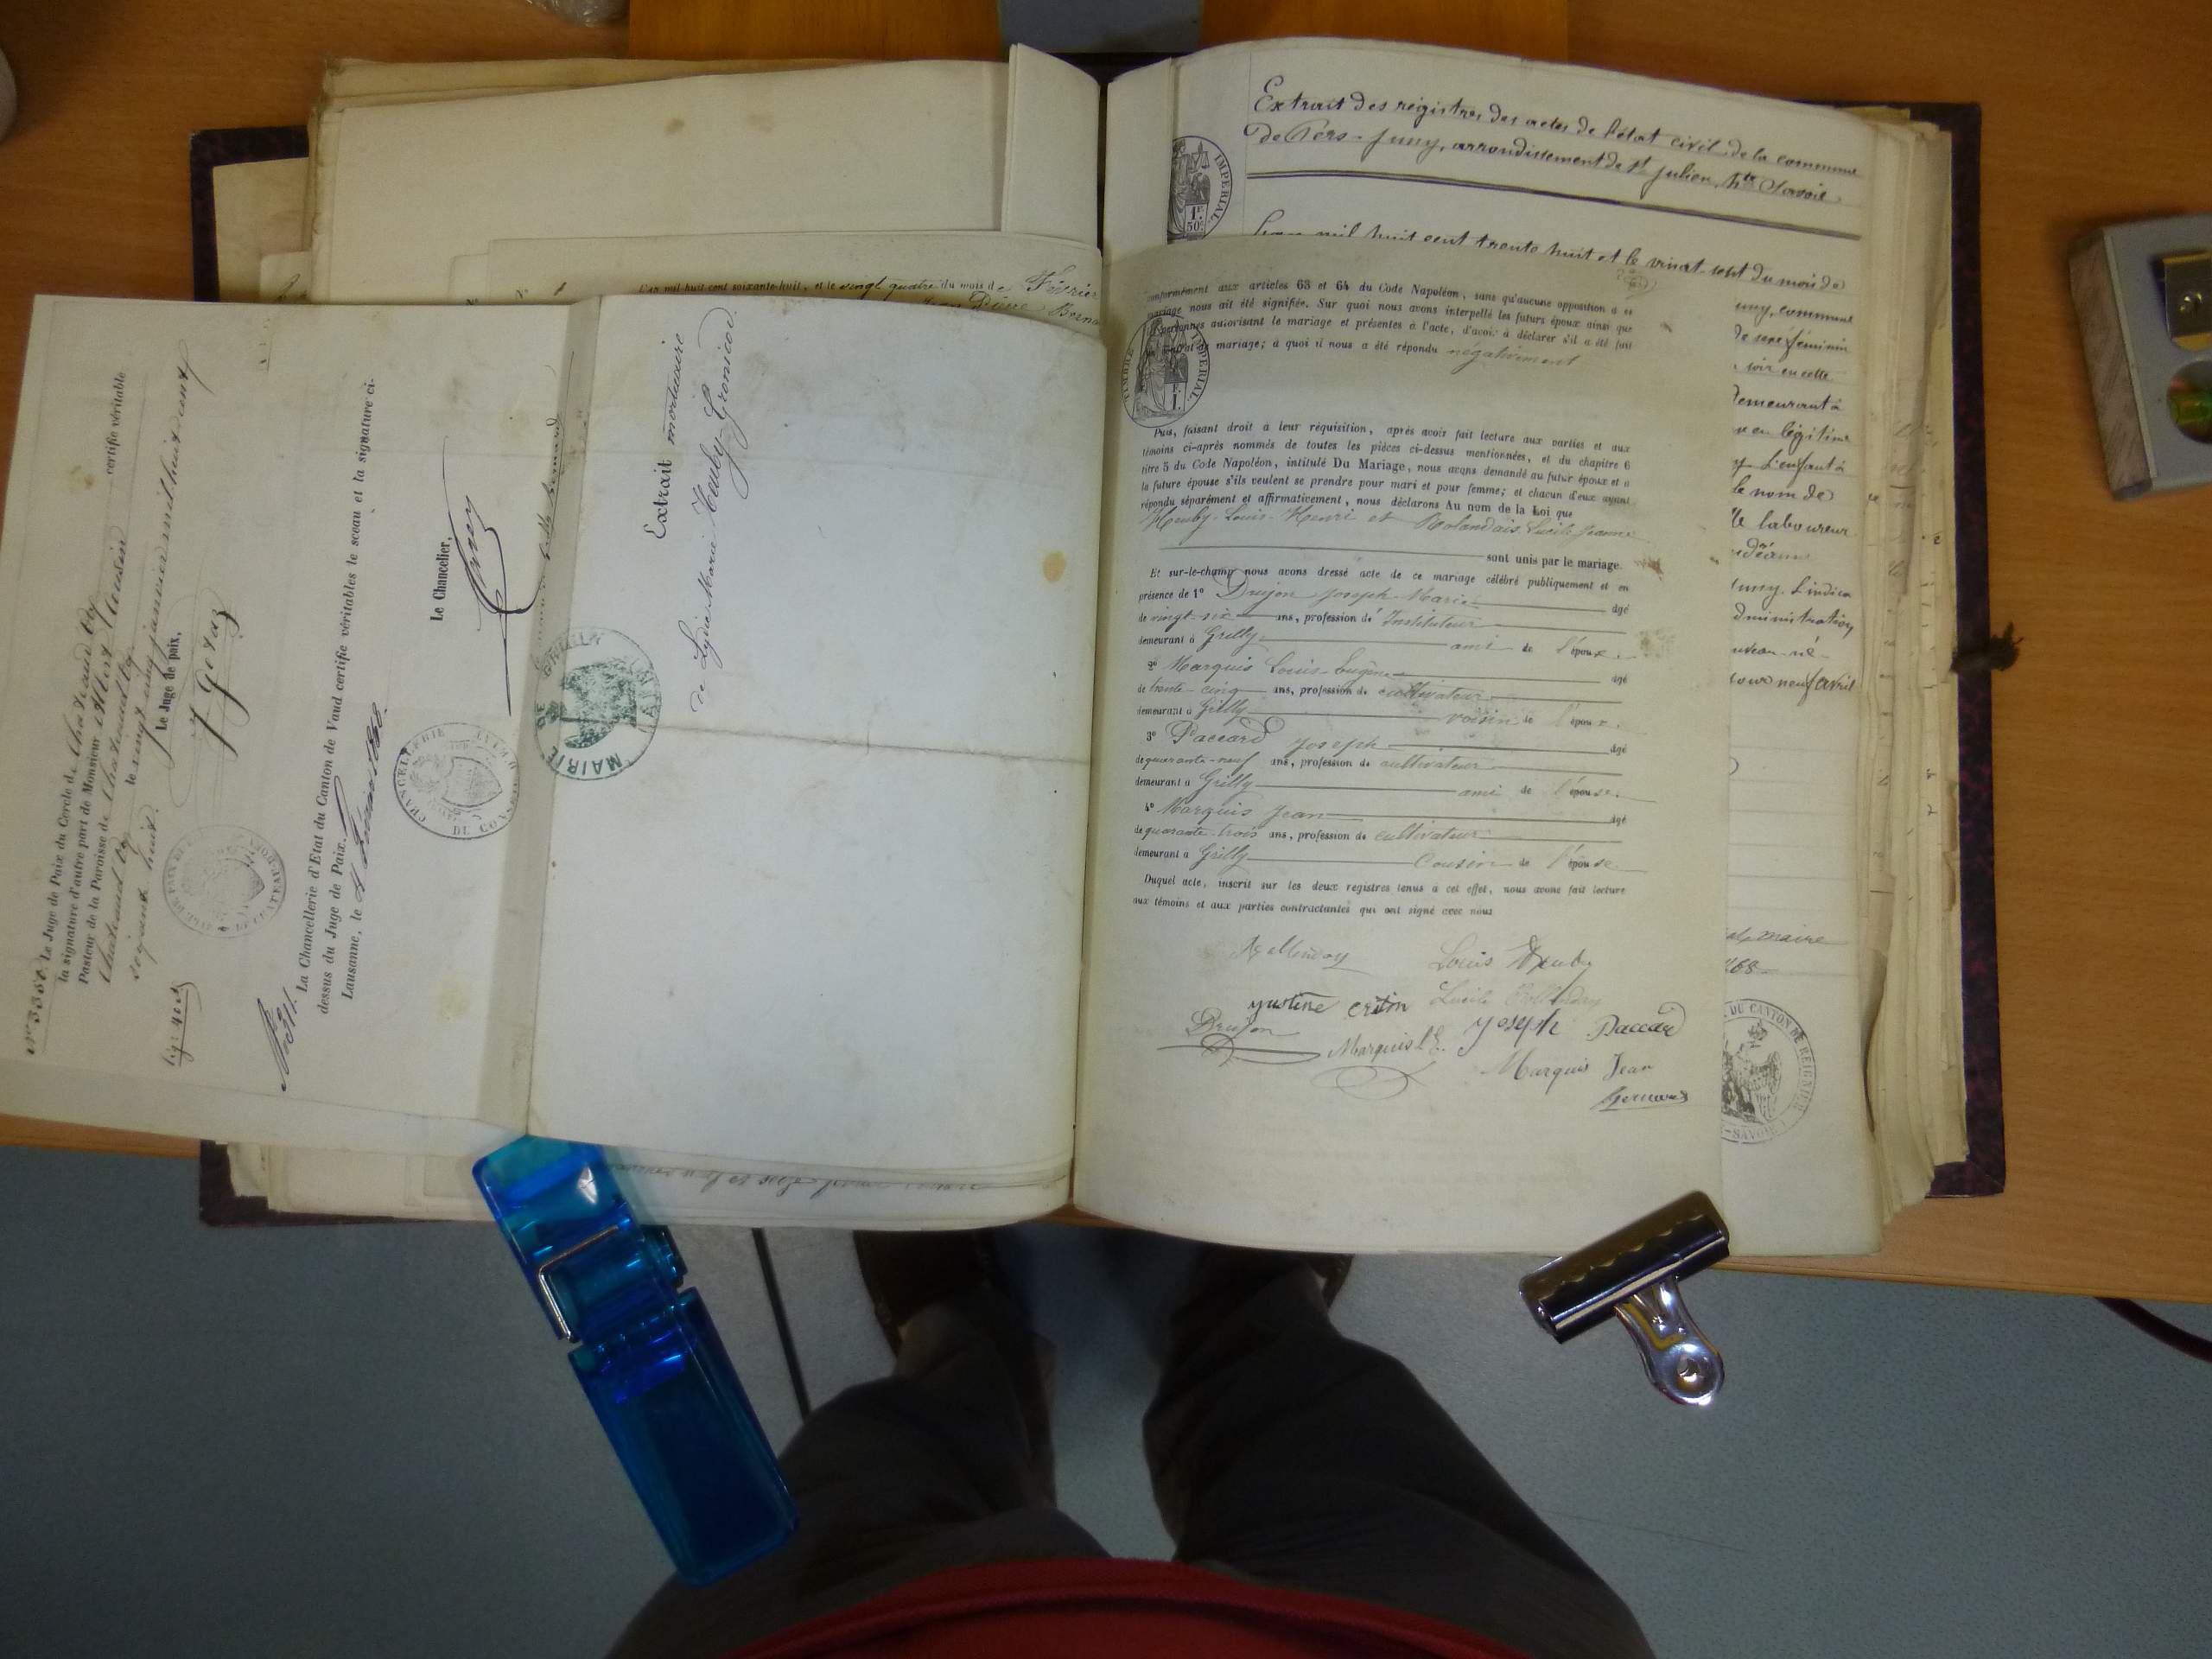 Nº 3360. Le Juge de Paix du Cercle de Chateau d'Oex certifie véritable
la signature d'autre part de Monsieur Albert Cousin
Pasteur de la Paroisse de
Chateau d'Oex le vingt cinq janvier mil huit cent
soixante huit.
Le Juge de paix,
Nº 31. La Chancellerie d'Etat du Canton de Vaud certifie véritables le sceau et la signature ci-
dessus du Juge de Paix.
Lausanne, le 4 Février 1868.
Le Chancelier,
CHANCELLERIE DU CANTON
MAIRIE DE GRILLY
Extrait mortuaire
de Lydie Marie Heuby
L'an mil-huit-cent soixante-huit, et le vingt quatre du mois de Février
Extrait des régistres des actes de l'état civil de la commune
de Pers-Jussy, arrondissement de St Julien, Hte Savoie
IMPERIAL
1F.
50c
L'an mil huit cent trente huit et le vingt-sept du mois de
conformément aux articles 63 et 64 du Code Napoléon, sans qu'aucune opposition à ce
mariage nous ait été signifiée. Sur quoi nous avons interpellé les futurs époux ainsi que
personnes autorisant le mariage et présentes à l'acte, d'avoir à déclarer s'il a été fait
mariage; à quoi il nous a été répondu négativement
TIMBRE IMPERIAL
Puis, faisant droit à leur réquisition, après avoir fait lecture aux parties et aux
témoins ci-après nommés de toutes les pièces ci-dessus mentionnées, et du chapitre 6
titre 5 du Code Napoléon, intitulé Du Mariage, nous avons demandé au futur époux et à
la future épouse s'ils veulent se prendre pour mari et pour femme; et chacun d'eux ayant
répondu séparément et affirmativement, nous déclarons Au nom de la Loi que
Heuby Louis-Henri et Rolandais Lucile Jeanne
sont unis par le mariage.
Et sur-le-champ nous avons dressé acte de ce mariage célébré publiquement et en
présence de 1º Drujon Joseph Marie âgé
de vingt-six ans, profession d' Instituteur
demeurant à Grilly ami de l'époux.
2º Marquis Louis-Eugène âgé
de trente-cinq ans, profession de cultivateur
demeurant à Grilly voisin de l'époux.
3º Paccard Joseph âgé
de quarante-neuf ans, profession de cultivateur
demeurant à Grilly ami de l'épouse.
4º Marquis Jean âgé
de quarante-trois ans, profession de cultivateur
demeurant à Grilly Cousin de l'épouse
Duquel acte, inscrit sur les deux registres tenus à cet effet, nous avons fait lecture
aux témoins et aux parties contractantes qui ont signé avec nous
Louis Heuby
justine criton Lucile
Drujon Marquis L E. Joseph Paccard
Marquis Jean
uny, commune
de sexe féminin
soir en cette
demeurant à
l'enfant à
le nom de
le laboureur
dministration
neuf avril
maire
DU CANTON DE REIGNIER
SAVOIE